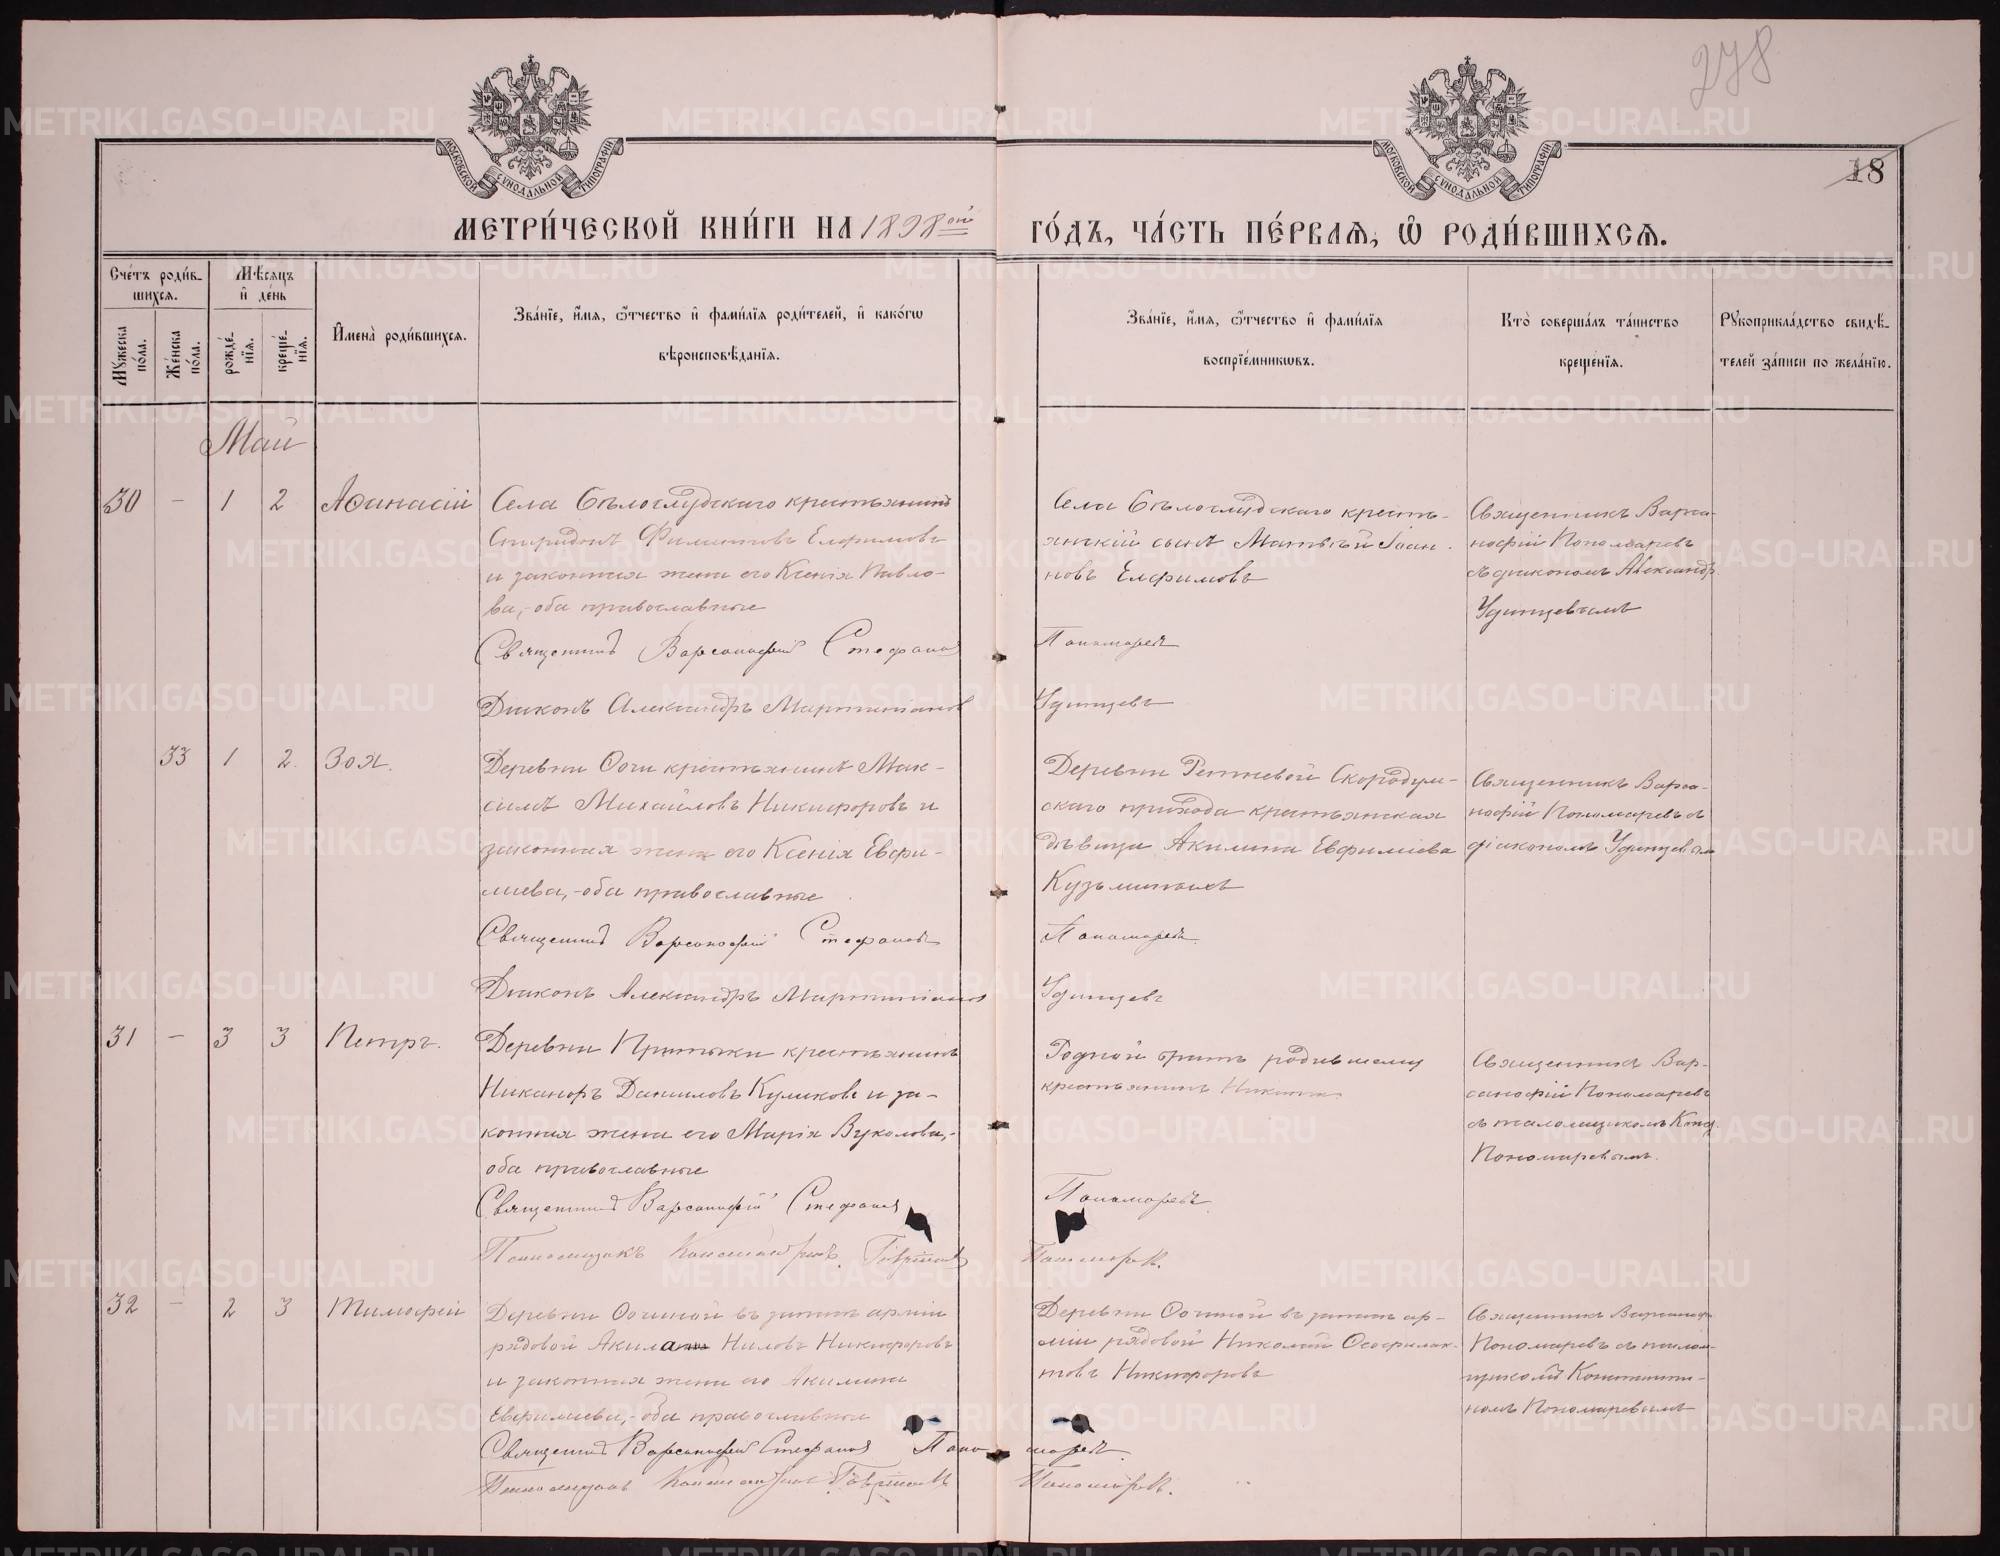 278
18
МОСКОВСКОЙ СУНОДАЛЬНОЙ ТИПОГРАФІИ
МОСКОВСКОЙ СУНОДАЛЬНОЙ ТИПОГРАФІИ
МЕТРИ́ЧЕСКОЙ КНИ́ГИ НА 1898ой ГО́ДЪ, ЧА́СТЬ ПЕ́РВАѦ, Ѡ҆ РОДИ́ВШИХСѦ.
Сче́тъ роди́в-
шихсѧ.
Мѣ́сѧцъ
и҆ де́нь
Мꙋ́жеска по́ла.
Же́нска по́ла.
рожде́-нїѧ.
креще́-нїѧ.
И҆мена̀ роди́вшихсѧ.
Зва́нїе, и҆́мѧ, ѻ҆́тчество и҆ фами́лїѧ роди́телей, и҆ како́гѡ
вѣроисповѣ́данїѧ.
Зва́нїе, и҆́мѧ, ѻ҆́тчество и҆ фами́лїѧ
воспрїе́мникѡвъ.
Кто̀ соверша́лъ та́инство
креще́нїѧ.
Рꙋкоприкла́дство свидѣ́-
телей за́писи по жела́нїю.
Май
30 - 1 2 Аѳанасій
Села Бѣлослудскаго крестьянинъ
Спиридонъ Филиповъ Елфимовъ
и законная жена его Ксенія Павло-
ва,-оба православные
Священникъ Варсонофій Стефановъ
Діаконъ Александръ Мартиніановъ
Села Бѣлослудскаго кресть-
янскій сынъ Матвѣй Іоан-
новъ Елфимовъ
Пономаревъ
Удинцевъ
Священникъ Варса-
нофій Пономаревъ
съ діакономъ Александр.
Удинцевымъ
33 1 2. Зоя.
Деревни Сочи крестьянинъ Мак-
симъ Михайловъ Никифоровъ и
законная жена его Ксенія Евфи-
міева,-оба православные
Священникъ Варсонофій Стефановъ
Діаконъ Александръ Мартиніановъ
Деревни Ретневой Скородум-
скаго прихода крестьянская
дѣвица Акилина Евфиміева
Кузьминыхъ
Пономаревъ
Удинцевъ
Священникъ Варса-
нофій Пономаревъ съ
діакономъ Удинцевымъ
31 - 3 3 Петръ.
Деревни Притыки крестьянинъ
Никаноръ Даниловъ Куликовъ и за-
конная жена его Марія Вуколова,-
оба православные
Священникъ Варсонофій Стефановъ
Псаломщикъ Константинъ
Родной братъ родившему
крестьянинъ Никита
Пономаревъ
Пономаревъ.
Священникъ Вар-
санофій Пономаревъ
съ псаломщикомъ Конс.
Пономаревымъ.
32 - 2 3 Тимофей
Деревни Сочиной въ запасъ арміи
рядовой Акила Ниловъ Никифоровъ
и законная жена его Акилина
Евфиміева,-оба православные
Священникъ Варсонофій Стефановъ Пономаревъ
Псаломщикъ Константинъ
Деревни Сочиной въ запасъ ар-
міи рядовой Николай Ѳеофилак-
товъ Никифоровъ
Пономаревъ.
Священникъ Варсаноф.
Пономаревъ съ псалом-
щикомъ Константи-
номъ Пономаревымъ
METRIKI.GASO-URAL.RU